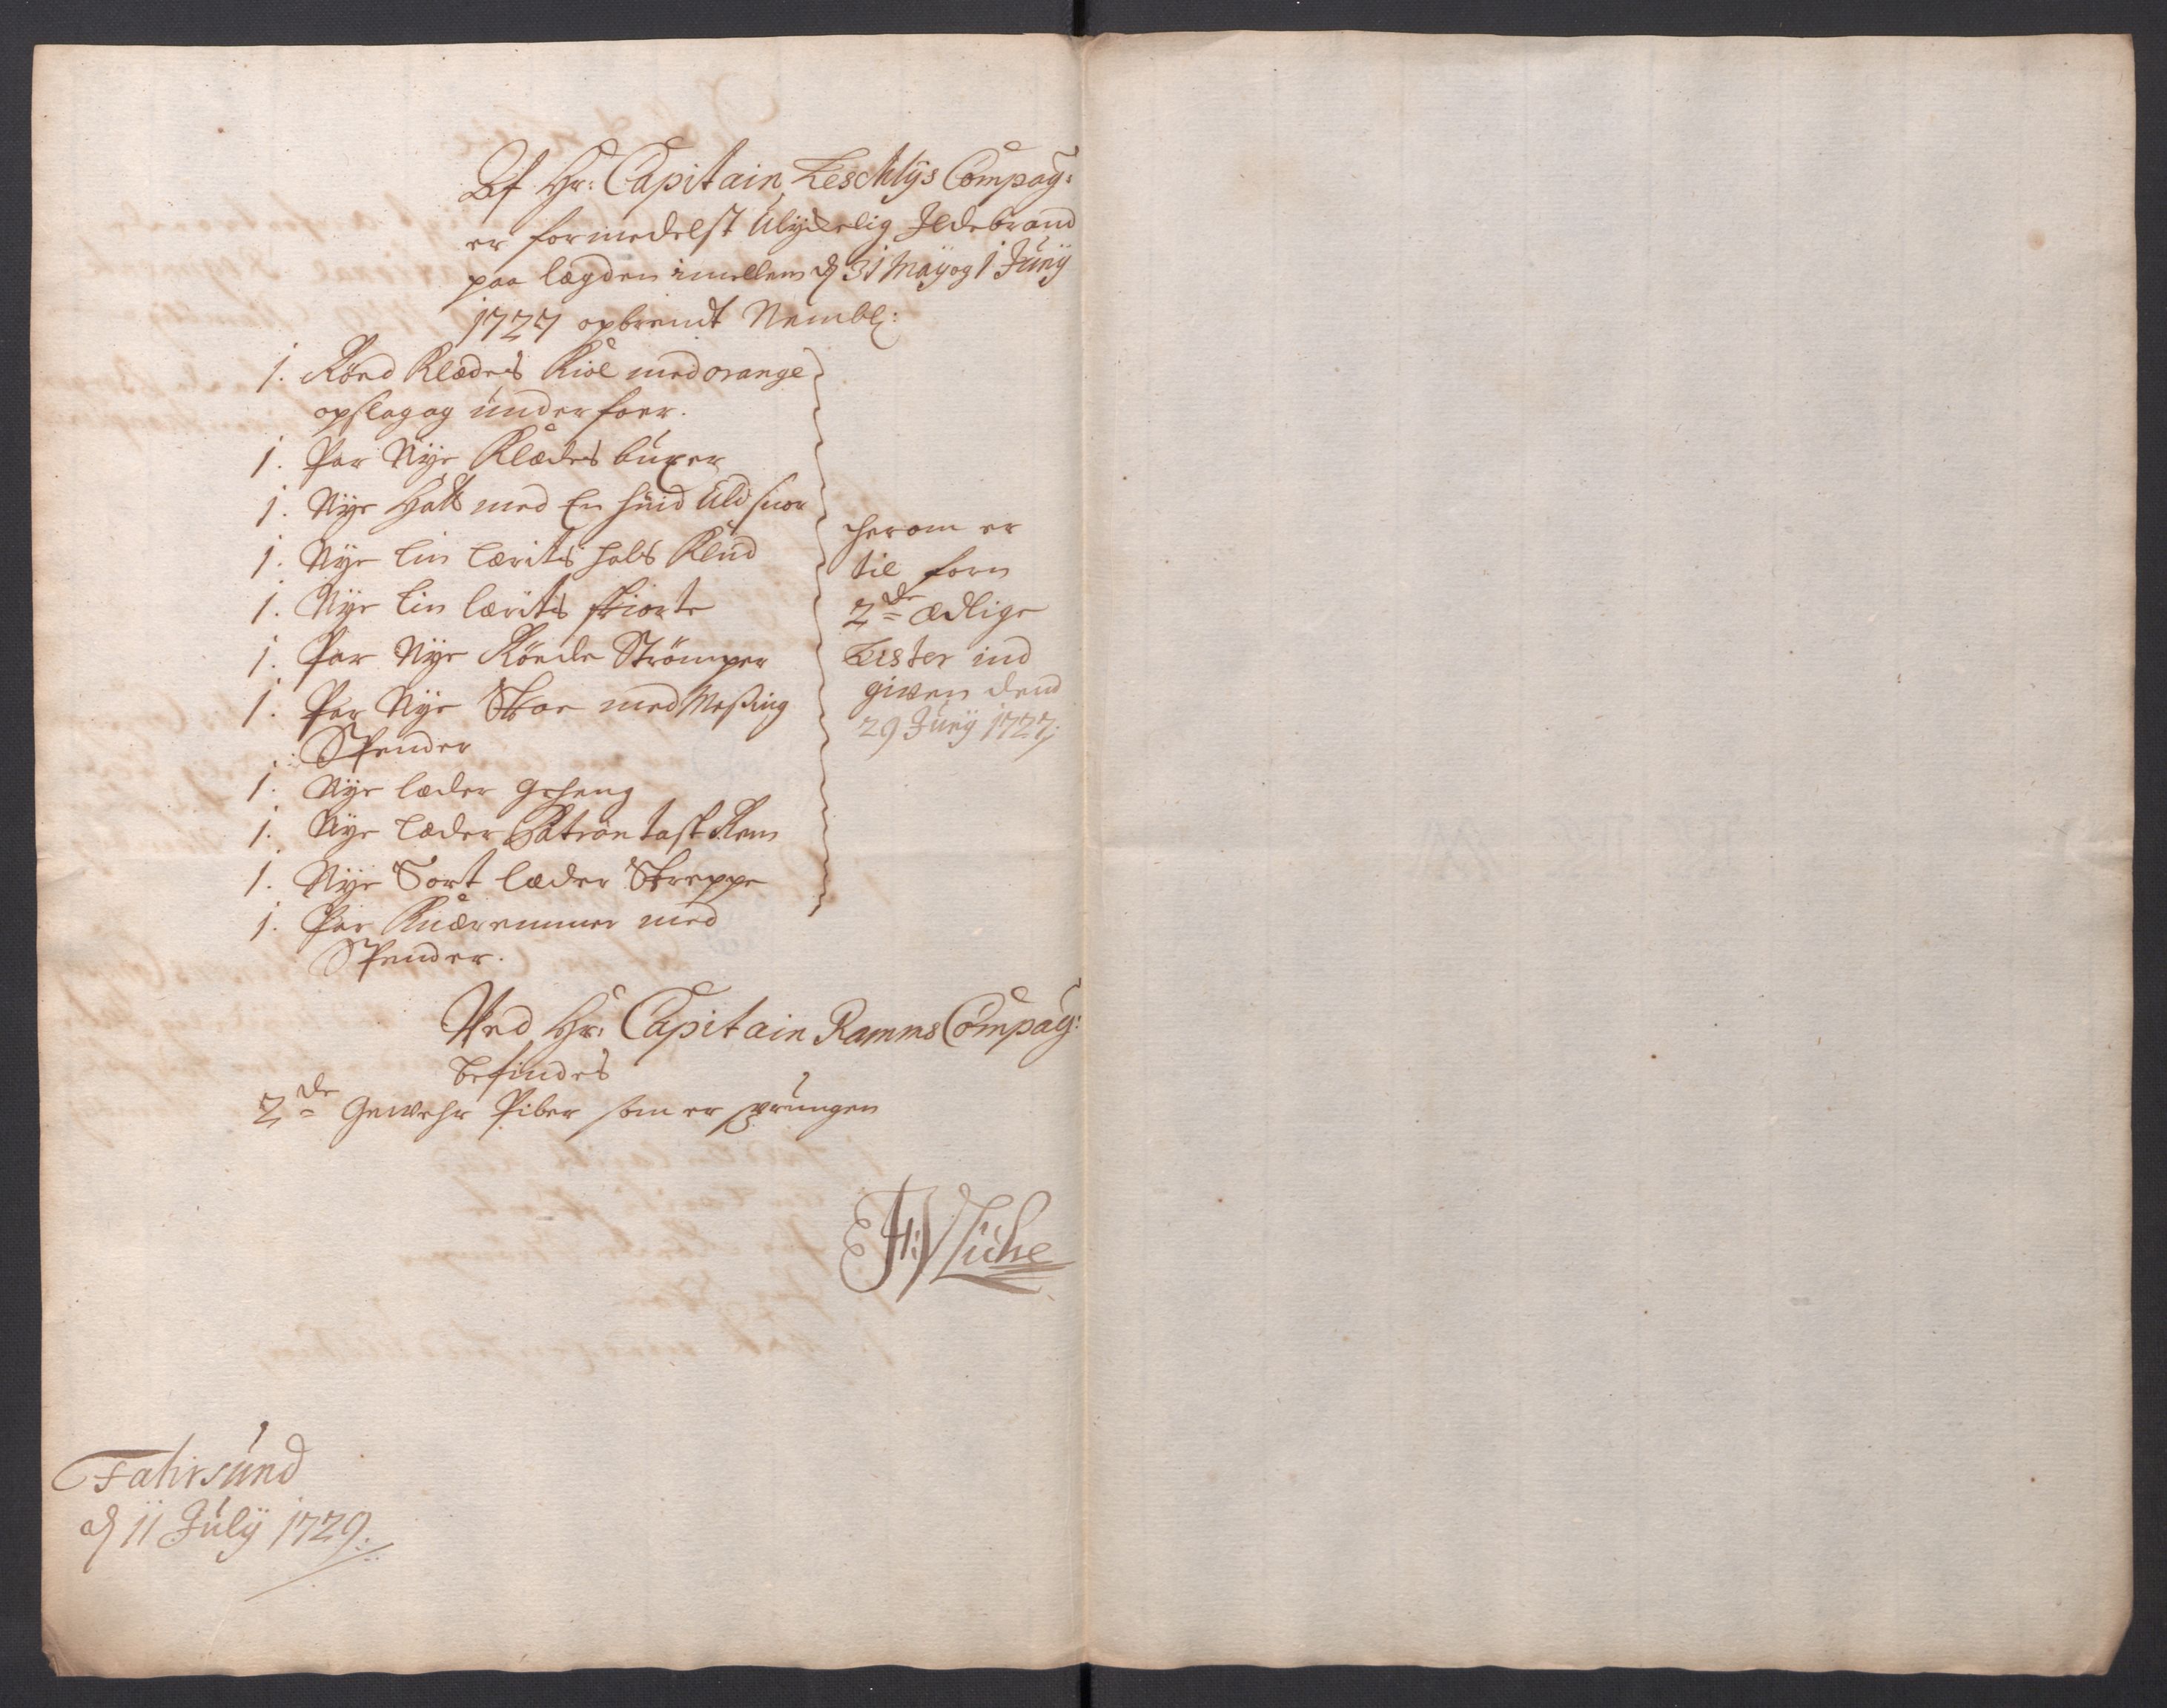 Af Hr: Capitain Leschlÿs Compag:
er formedelst Ulÿdelig Ildebrand
paa lægden imellem d 31 Maÿ og 1 Junÿ
1727 opbrendt Nembl:
1. Røed Klædes Kiol med orange
opslag og under foer.
1. Par Nÿe Klædes buxer
1. Nÿe Hatt med En huid Uld snor
1. Nÿe Lin Lærits hals Klud
1. Nÿe Lin lærits skiorte
1. Par Nÿe Røede Strömper
1. Par Nÿe Skoe med Messing
Spender
1. Nÿe læder geheng
1. Nÿe Læder Patron task Rem
1. Nÿe Sort læder Skreppe
1. Par Knæremmer med
Spender.
herom er
til forn
2de ædlige
Lister ind
given dend
29 Junÿ 1727.
Ved Hr: Capitain Ramms Compag:
befindes
2de Gewehr Piber som er sprungen
Fahrsund
d 11 Julÿ 1729.